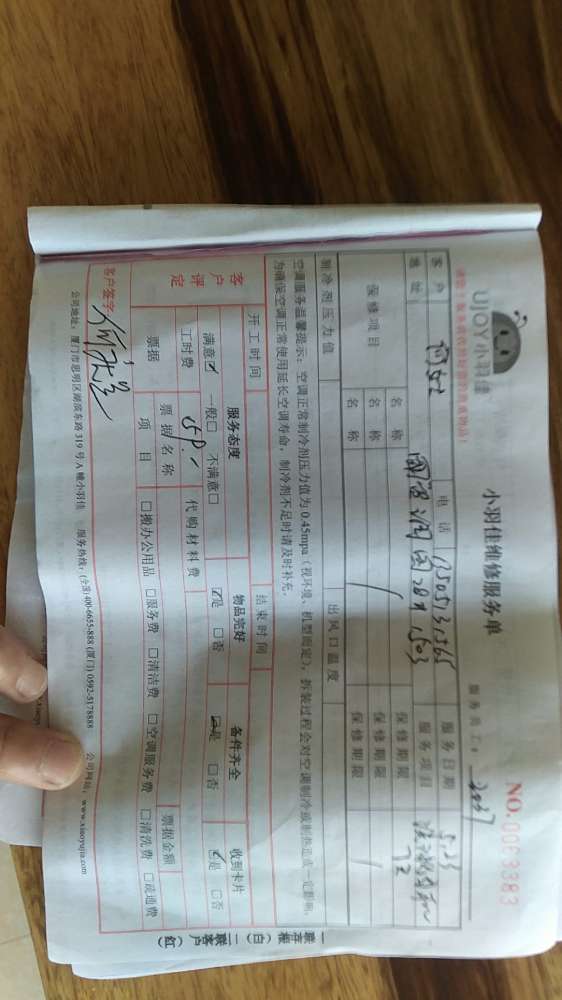 UJOY小羽佳
小羽佳维修服务单
NO. 0093383
请您于服务前收妥贴身的贵重物品!
服务员工:
客户 电话 服务日期 5.23
地址 服务项目
保修项目 名称 保修期限
名称 保修期限
制冷剂压力值 出风口温度
空调服务温馨提示:空调正常制冷剂压力值为0.45mpa(视环境、机型而定),拆装过程会对空调制冷或制热造成一定影响,
为确保空调正常使用延长空调寿命,制冷剂不足时请及时补充。
开工时间 结束时间
客户评定 服务态度 物品完好 备件齐全 收到卡片
满意☑ 一般□ 不满意□ ☑是 □否 ☑是 □否 ☑是 □否
工时费 代购材料费
票据 票据名称 票据金额
项目 □搬办公用品 □服务费 □清洁费 □空调服务费 □清洗费 □疏通费
客户签字:
公司地址:厦门市思明区湖滨东路319号A幢小羽佳 服务热线:(全国)400-6655-888 (厦门) 0592-5178888 公司网站:www.xiaoyujia.com
一联存根(白) 二联客户(红)